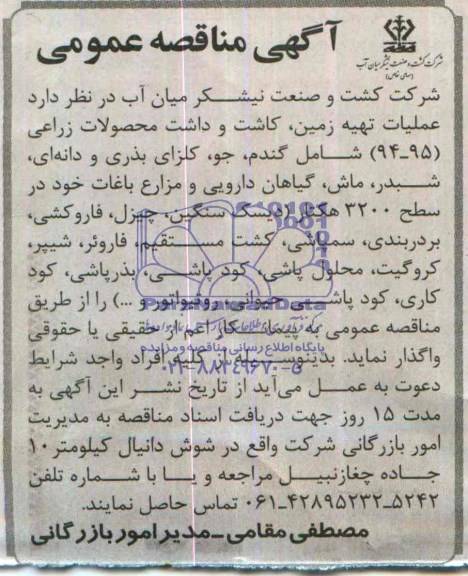 آگهی مناقصه عمومی
شرکت کشت و صنعت نیشکر میان آب
(سهامی خاص)
شرکت کشت و صنعت نیشـــکر میان آب در نظر دارد
عملیات تهیه زمین، کاشت و داشت محصولات زراعی
(۹۵ـ۹۴) شـــامل گندم، جو، کلزای بذری و دانه‌ای،
شـــبدر، ماش، گیاهان دارویی و مزارع باغات خود در
سطح ۳۲۰۰ هکتار (دیسک سنگین، چیزل، فاروکشی،
بردربندی، سمپاشی، کشت مســـتقیم، فاروئر، شیپر،
کروگیت، محلول پاشی، کود پاشـــی، بذرپاشی، کود
کاری، کود پاشـــی حیوانی، روتیواتور و ...) را از طریق
مناقصه عمومی به پیمانـــکار اعم از حقیقی یا حقوقی
واگذار نماید. بدینوســـیله از کلیه افراد واجد شرایط
دعوت به عمـــل می‌آید از تاریخ نشـــر این آگهی به
مدت ۱۵ روز جهت دریافت اسناد مناقصه به مدیریت
امور بازرگانی شرکت واقع در شوش دانیال کیلومتر ۱۰
جـــاده چغازنبیل مراجعه و یـــا با شـــماره تلفن
۵۲۴۲ـ۴۲۸۹۵۲۳۲ـ۰۶۱ تماس حاصل نمایند.
مصطفی مقامی ـ مدیر امور بازرگانی
ParsNamadData
پایگاه اطلاع رسانی مناقصه و مزایده
۰۲۱-۸۸۳۴۹۶۷۰-۵